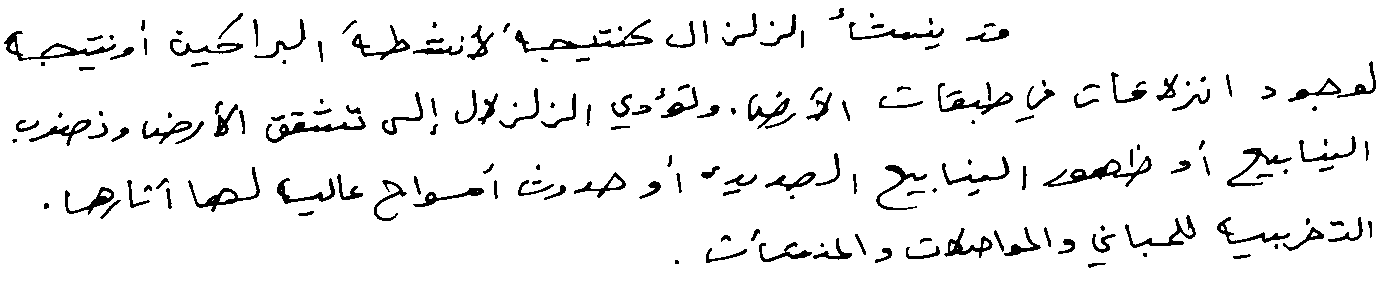 قد ينشأ الزلزال كنتيجة لأنشطة البراكين أو نتيجة
لوجود انزلاقات في طبقات الأرض. وتؤدي الزلازل إلى تشقق الأرض ونضوب
الينابيع أو ظهور الينابيع الجديدة أو حدوث أمواج عالية لها آثارها.
التخريبية للمباني والمواصلات والمنشآت.